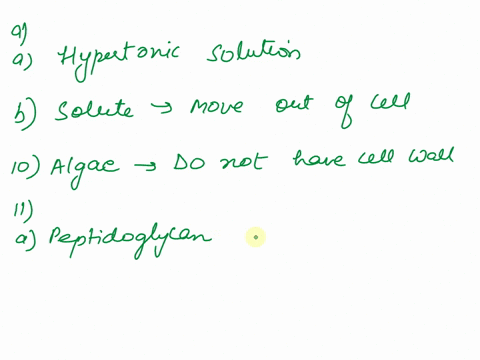 9)
a) Hypertonic solution
b) Solute → Move out of cell
10) Algae → Do not have cell wall
11)
a) Peptidoglycan